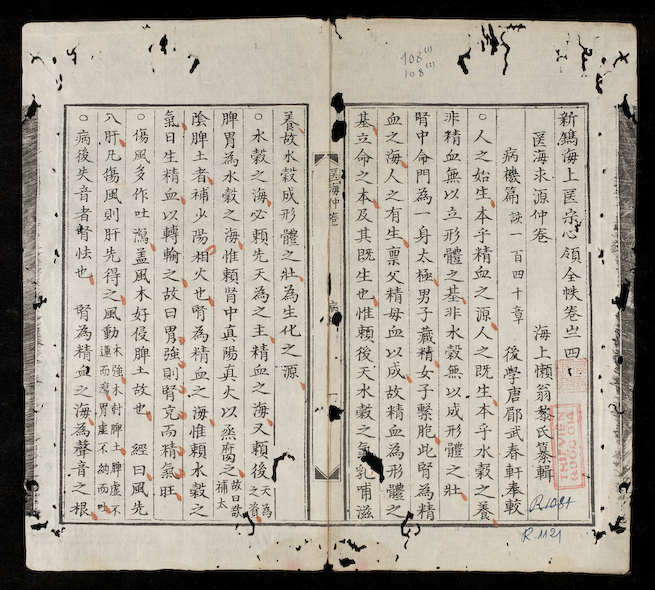 新鐫海上医宗心領全帙卷之四
医海求源仲卷　海上懶翁黎氏纂輯
病機篇　該一百四十章　後學唐郿武春軒奉較
○人之始生本乎精血之源人之既生本乎水穀之養
非精血無以立形體之基非水穀無以成形體之壯
腎中命門為一身太極男子藏精女子繫胞此腎為精
血之海人之有生稟父精母血以成故精血為形體之
基立命之本及其既生也惟賴後天水穀之氣乳哺滋
医海仲卷
養故水穀成形體之壯為生化之源
○水穀之海必賴先天為之主精血之海又賴後天為之資
脾胃為水穀之海惟賴腎中真陽真火以蒸腐之故曰欲補太
陰脾土者補少陽相火也腎為精血之海惟賴水穀之
氣日生精血以轉輸之故曰胃強則腎充而精氣旺
○傷風多作吐瀉盖風木好侵脾土故也　經曰風先
入肝凡傷風則肝先得之風動木強木尅脾土脾虛不運而瀉胃虛不納而吐
○病後失音者腎怯也　腎為精血之海為聲音之根
108(1)
108(2)
THƯ VIỆN
QUỐC GIA
R.1084
R.1121